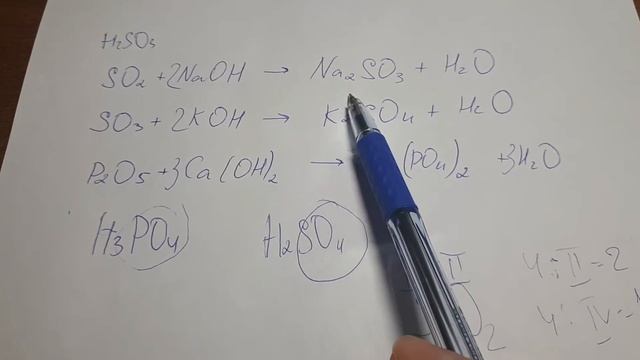 H₂SO₃
SO₂ + 2NaOH → Na₂SO₃ + H₂O
SO₃ + 2KOH → K₂SO₄ + H₂O
P₂O₅ + 3Ca(OH)₂ → (PO₄)₂ + 3H₂O
H₃PO₄ H₂SO₄
II
)₂
4 : II = 2
4 : IV =